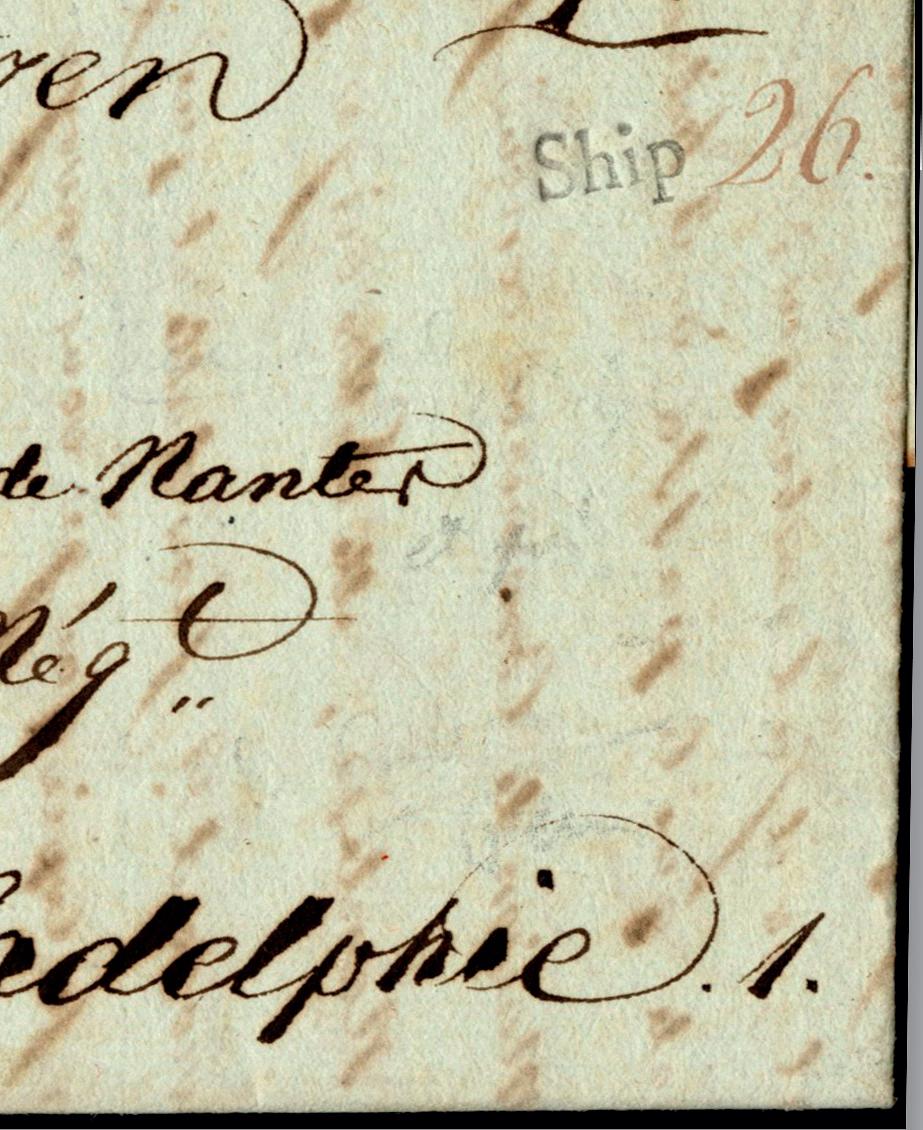 ren
Ship 26.
de Nantes
Nég
adelphie. 1.